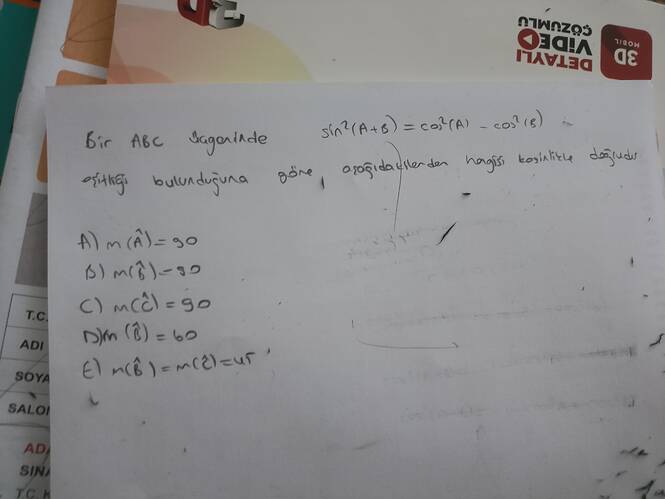 DETAYLI
VİDEO
ÇÖZÜMLÜ
3D
MOBİL
Bir ABC üçgeninde sin²(A+B) = cos²(A) - cos²(B)
eşitliği bulunduğuna göre, aşağıdakilerden hangisi kesinlikle doğrudur
A) m(Â) = 90
B) m(B̂) = 90
C) m(Ĉ) = 90
D) m(B̂) = 60
E) m(B̂) = m(Ĉ) = 45
T.C.
ADI
SOYA
SALO
ADA
SINA
T.C. K